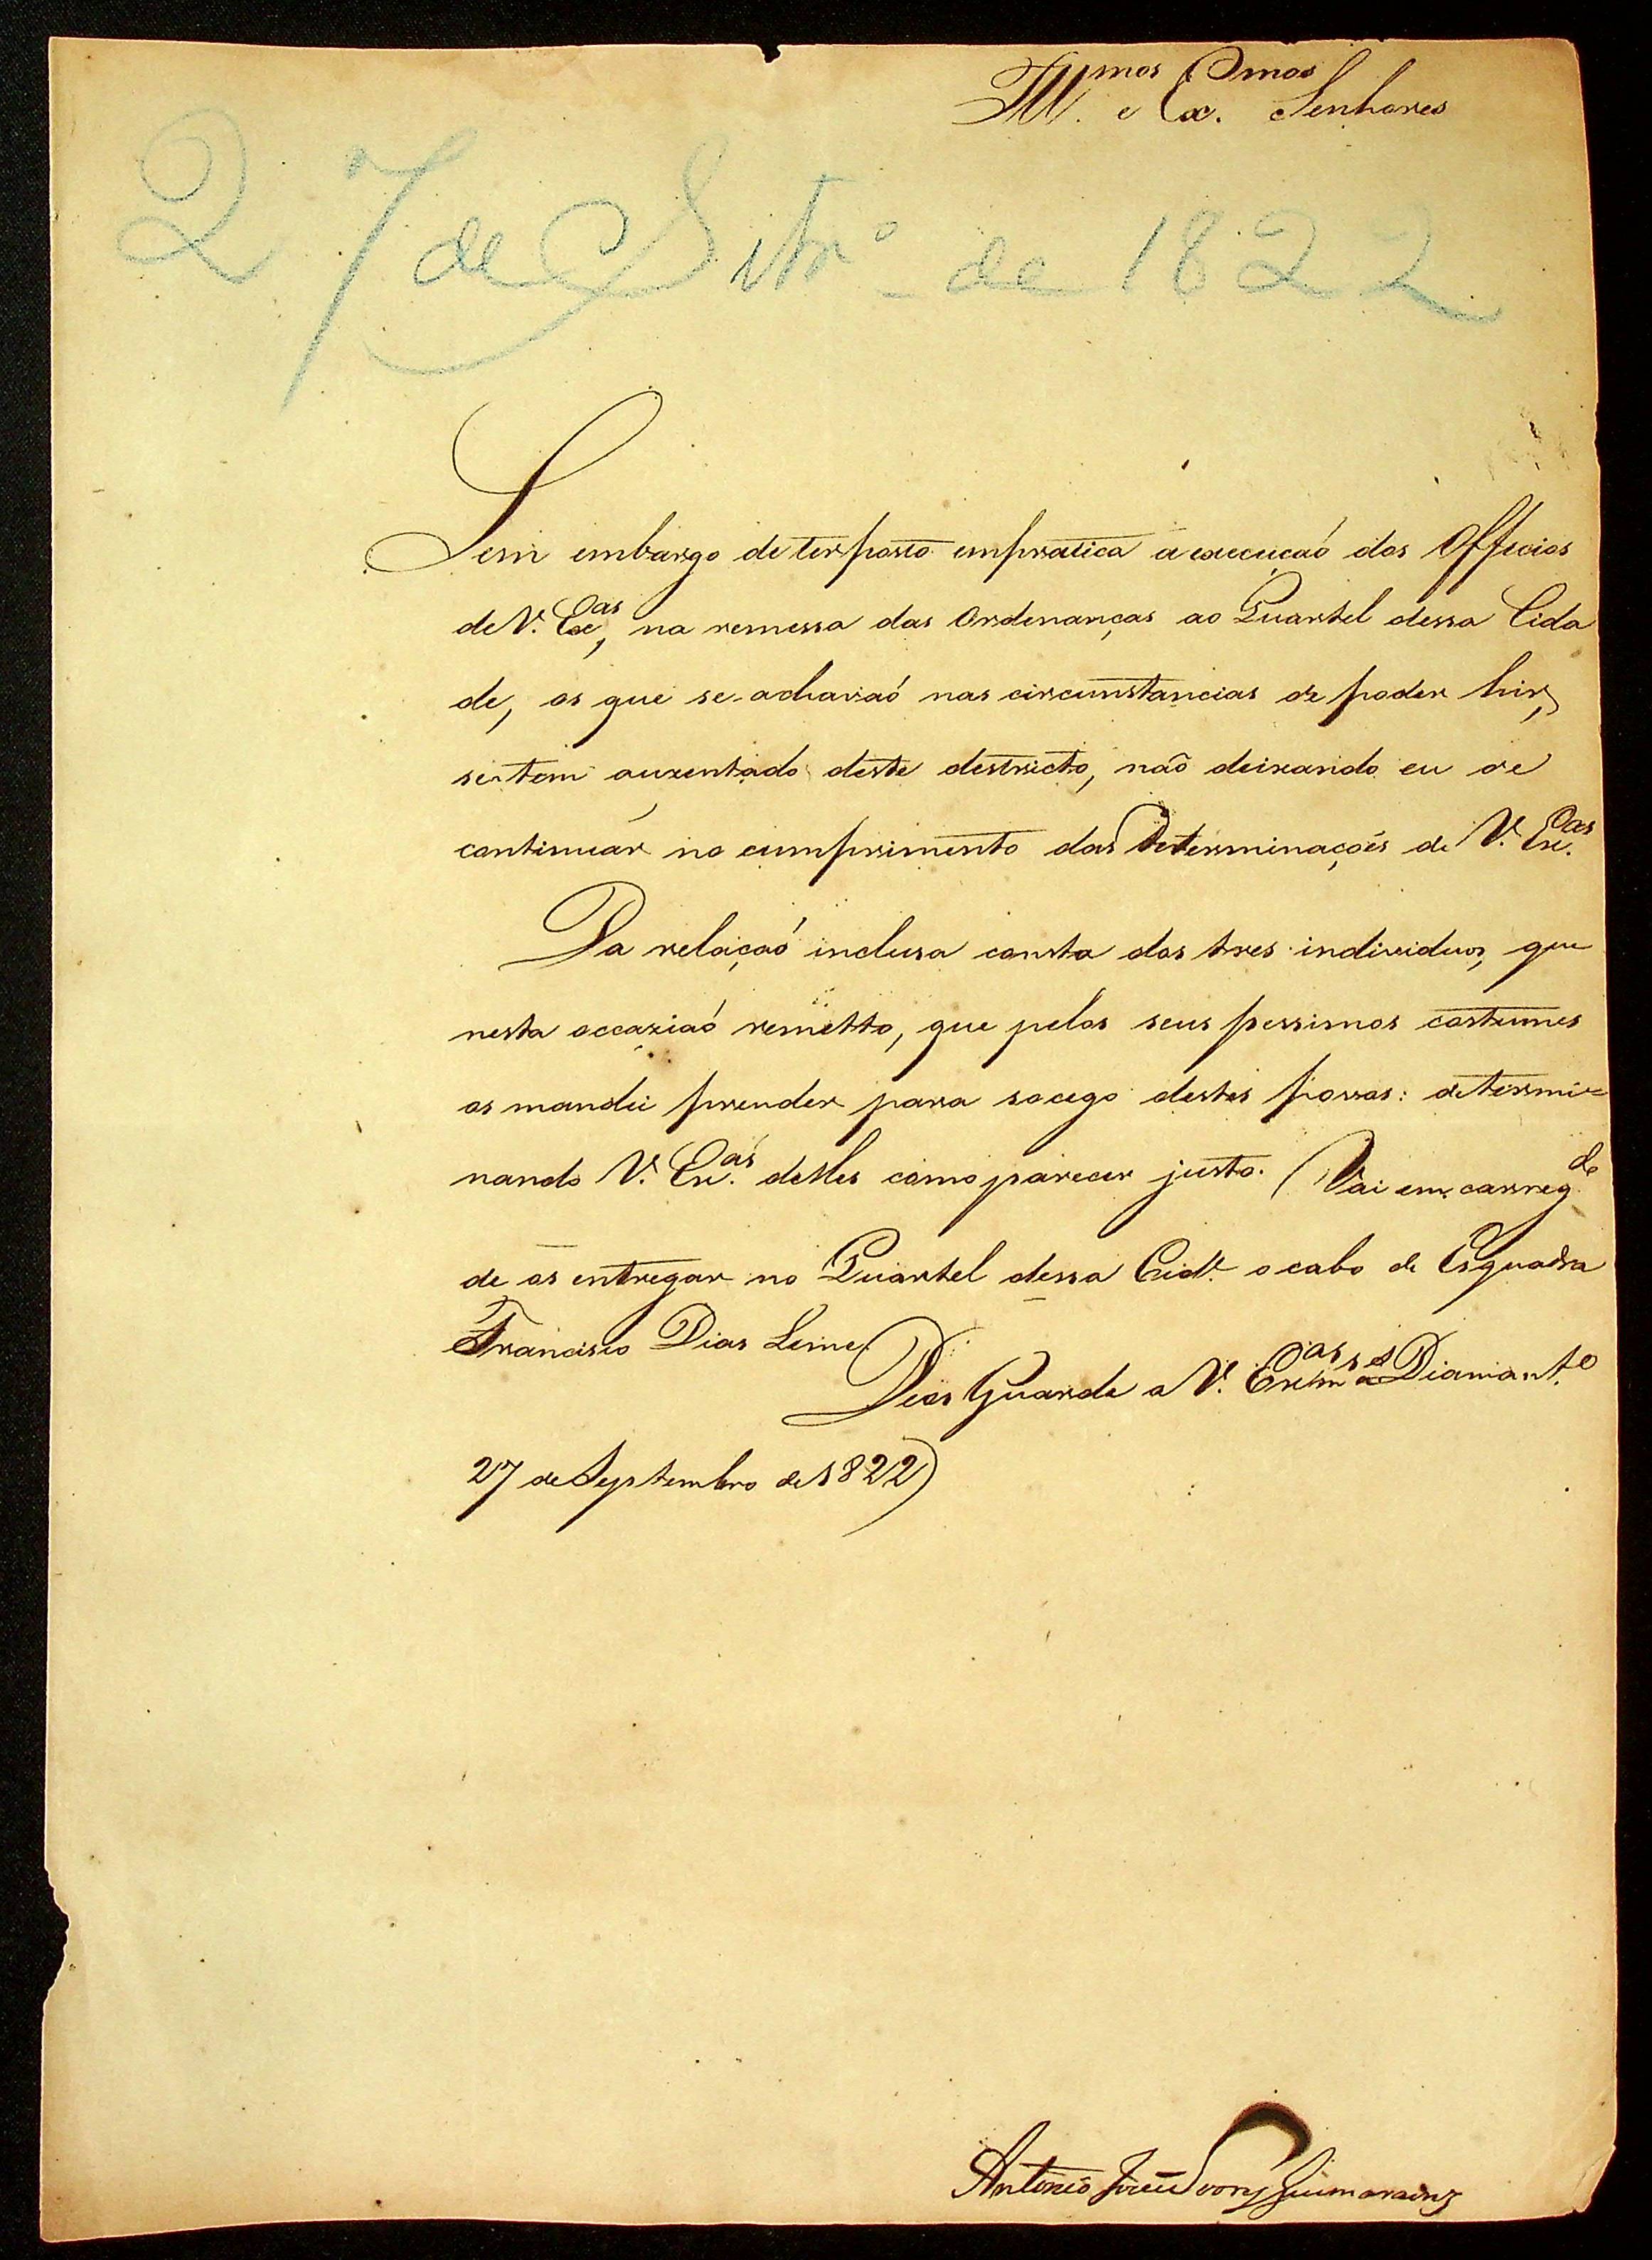 Ill.mos e Ex.mos Senhores
27 de Setbr.o de 1822
Sem embargo de ter posto em pratica a execuçaó dos Officios
de V. Ex.as, na remessa das Ordenanças ao Quartel dessa Cida
de, os que se achavaó nas circunstancias de poder hir,
se tem auzentado deste destricto, naõ deixando eu de
continuár no cumprimento das Determinaçoẽs de V. Ex.as
Da relaçaó inclusa consta dos tres individuos, que
nesta occaziaó remetto, que pelos seus pessimos costumes
os mandei prender para socego destes povos: determi=
nando V. Ex.as delles como parecer justo. Vai em carreg.do
de os entregar no Quartel dessa Cid.e o cabo de Esquadra
Francisco Dias Leme.
Deos Guarde a V. Ex.as m.s a.s Diamant.o
27 de Septembro de 1822
Antonio José Soares Guimaraens